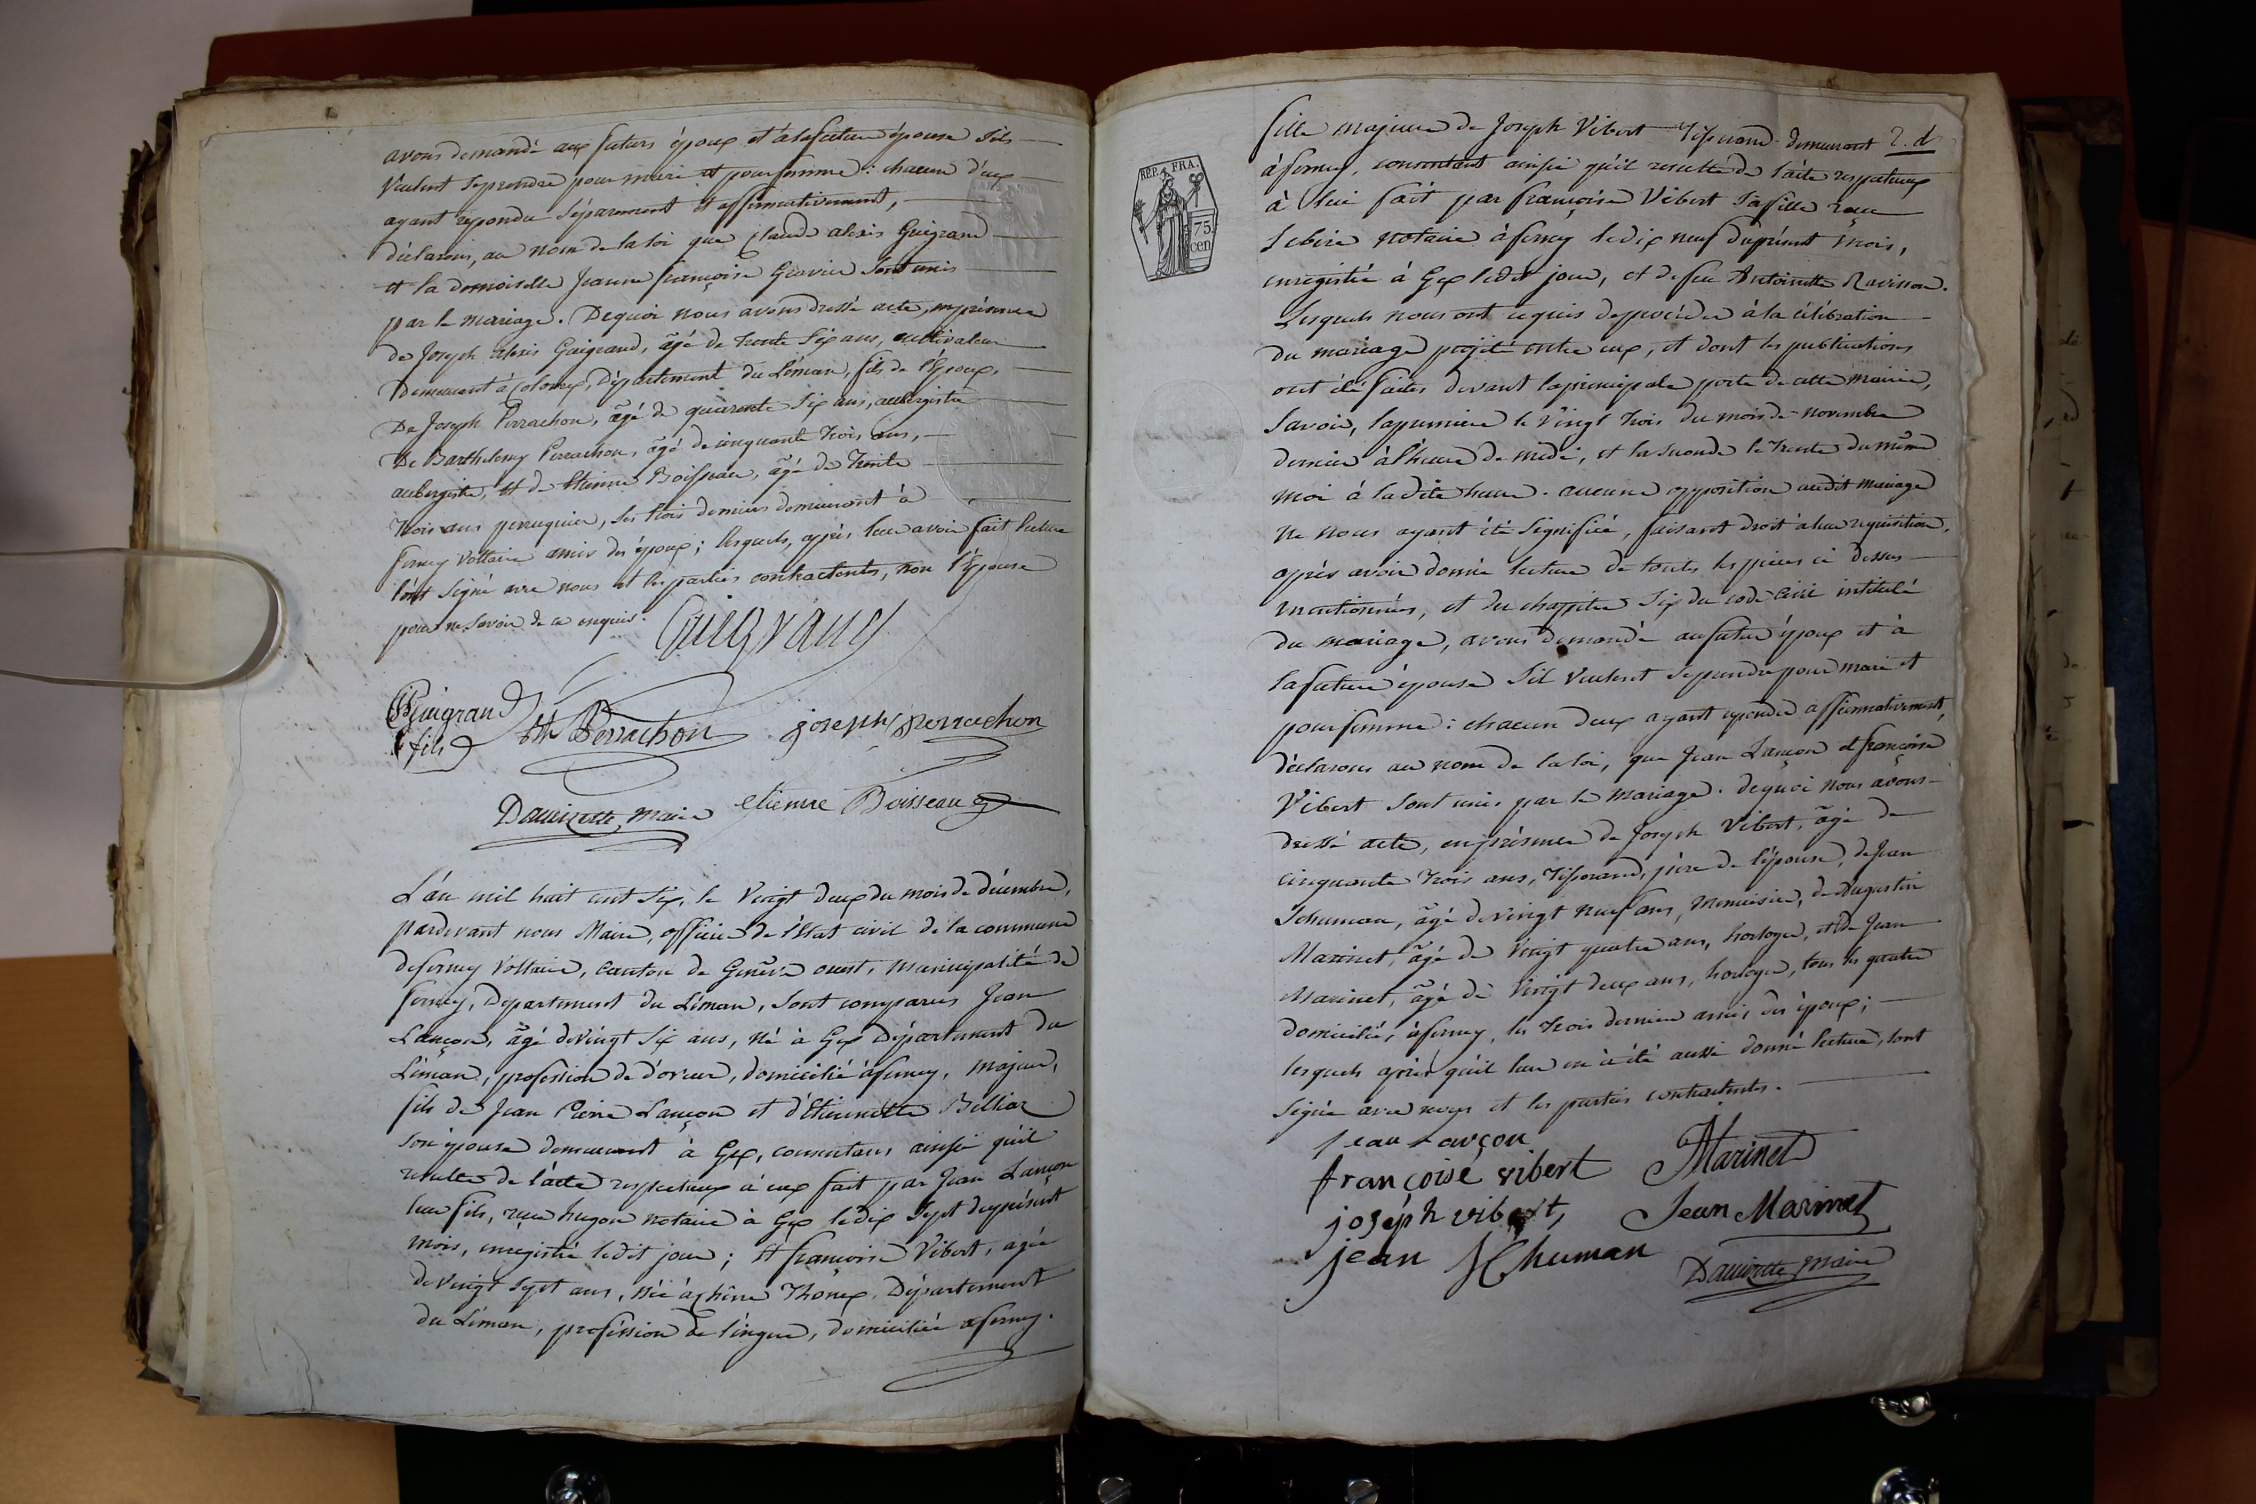 avons demandé aux futurs époux et à la future épouse s'ils
veulent se prendre pour mari et pour femme : chacun d'eux
ayant repondu séparement et affirmativement,
déclarons, au nom de la loi que Claude alexis Guigrand
et la demoiselle Jeanne françoise Gravier sont unis
par le mariage. De quoi nous avons dressé acte, en présence
de Joseph alexis Guigrand, âgé de trente six ans, cultivateur
Demeurant à Colonex, Département du Léman, fils de l'Epoux,
De Joseph Perrachon, âgé de quarente six ans, aubergiste
De Barthelemy Perrachon, âgé de cinquante trois ans,
aubergiste, et de Etienne Boisseau, âgé de trente
trois ans perruquier, les trois derniers demeurant à
ferney Voltaire amis des époux ; lesquels, après leur avoir fait lecture
l'ont signé avec nous et les parties contractentes, non l'Epouse
pour ne savoir de ce enquise.
Guigrand
Guigrand
fils
Bth Perrachon
joseph perrachon
Dauvizette, Maire
etienne Boisseau
L'an mil huit cent six, le vingt deux du mois de décembre,
pardevant nous Maire, officier de l'état civil de la commune
de ferney Voltaire, canton de Genève ouest, municipalité de
ferney, Departement du Léman, sont comparus Jean
Lançon, âgé de vingt six ans, né à Gex Département du
Léman, profession de doreur, domicilié à ferney, majeur,
fils de Jean Pierre Lançon et d'Etiennette Belliar
son épouse demeurant à Gex, consentans ainsi qu'il
resulte de l'acte respectueux à eux fait par Jean Lançon
leur fils, reçu hugon notaire à Gex le dix sept du présent
mois, enregistré ledit jour ; et françoise Vibert, agée
de vingt sept ans, née à Chêne Thonex, Département
du Léman, proféssion de lingere, domiciliée a ferney.
REP. FRA.
75
cen
fille majeure de Joseph Vibert Tisserand demeurant 2. d
à ferney, consentant ainsi qu'il resulte de l'acte respectueux
à lui fait par françoise Vibert sa fille reçu
notaire à ferney le dix neuf du présent mois,
enregistré à Gex ledit jour, et de feu Antoinette Ravisson.
Lesquels nous ont requis de proceder à la célébration
du mariage projeté entre eux, et dont les publications
ont été faites devant la principale porte de cette mairie,
Savoir, la premiere le vingt trois du mois de novembre
dernier à l'heure de midi, et la seconde le trente du même
moi à la dite heure. aucune opposition audit mariage
ne nous ayant été signifiée, faisant droit à leur réquisition,
après avoir donné lecture de toutes les pieces ci dessus
mentionnées, et du chapitre six du code civil intitulé
du mariage, avons demandé au futur époux et à
la future épouse s'il veulent se prendre pour mari et
pour femme : chacun deux ayant repondu affirmativement,
déclarons au nom de la loi, que Jean Lançon et françoise
Vibert sont unis par le mariage. de quoi nous avons
dressé acte, en présence de Joseph Vibert, âgé de
cinquante trois ans, tisserand, père de l'épouse, de Jean
Schuman, âgé de vingt neuf ans, menuisier, de Augustin
Marinet, âgé de vingt quatre ans, horloger, et de Jean
Marinet, âgé de vingt deux ans, horloger, tous les quatre
domiciliés à ferney, les trois derniers amis des époux ;
lesquels après qu'il leur en à été aussi donné lecture, l'ont
signée avec nous et les parties contractentes.
jean Lançon
françoise vibert
Marinet
joséph vibert,
Jean Marinet
jean schuman
Dauvizette, maire